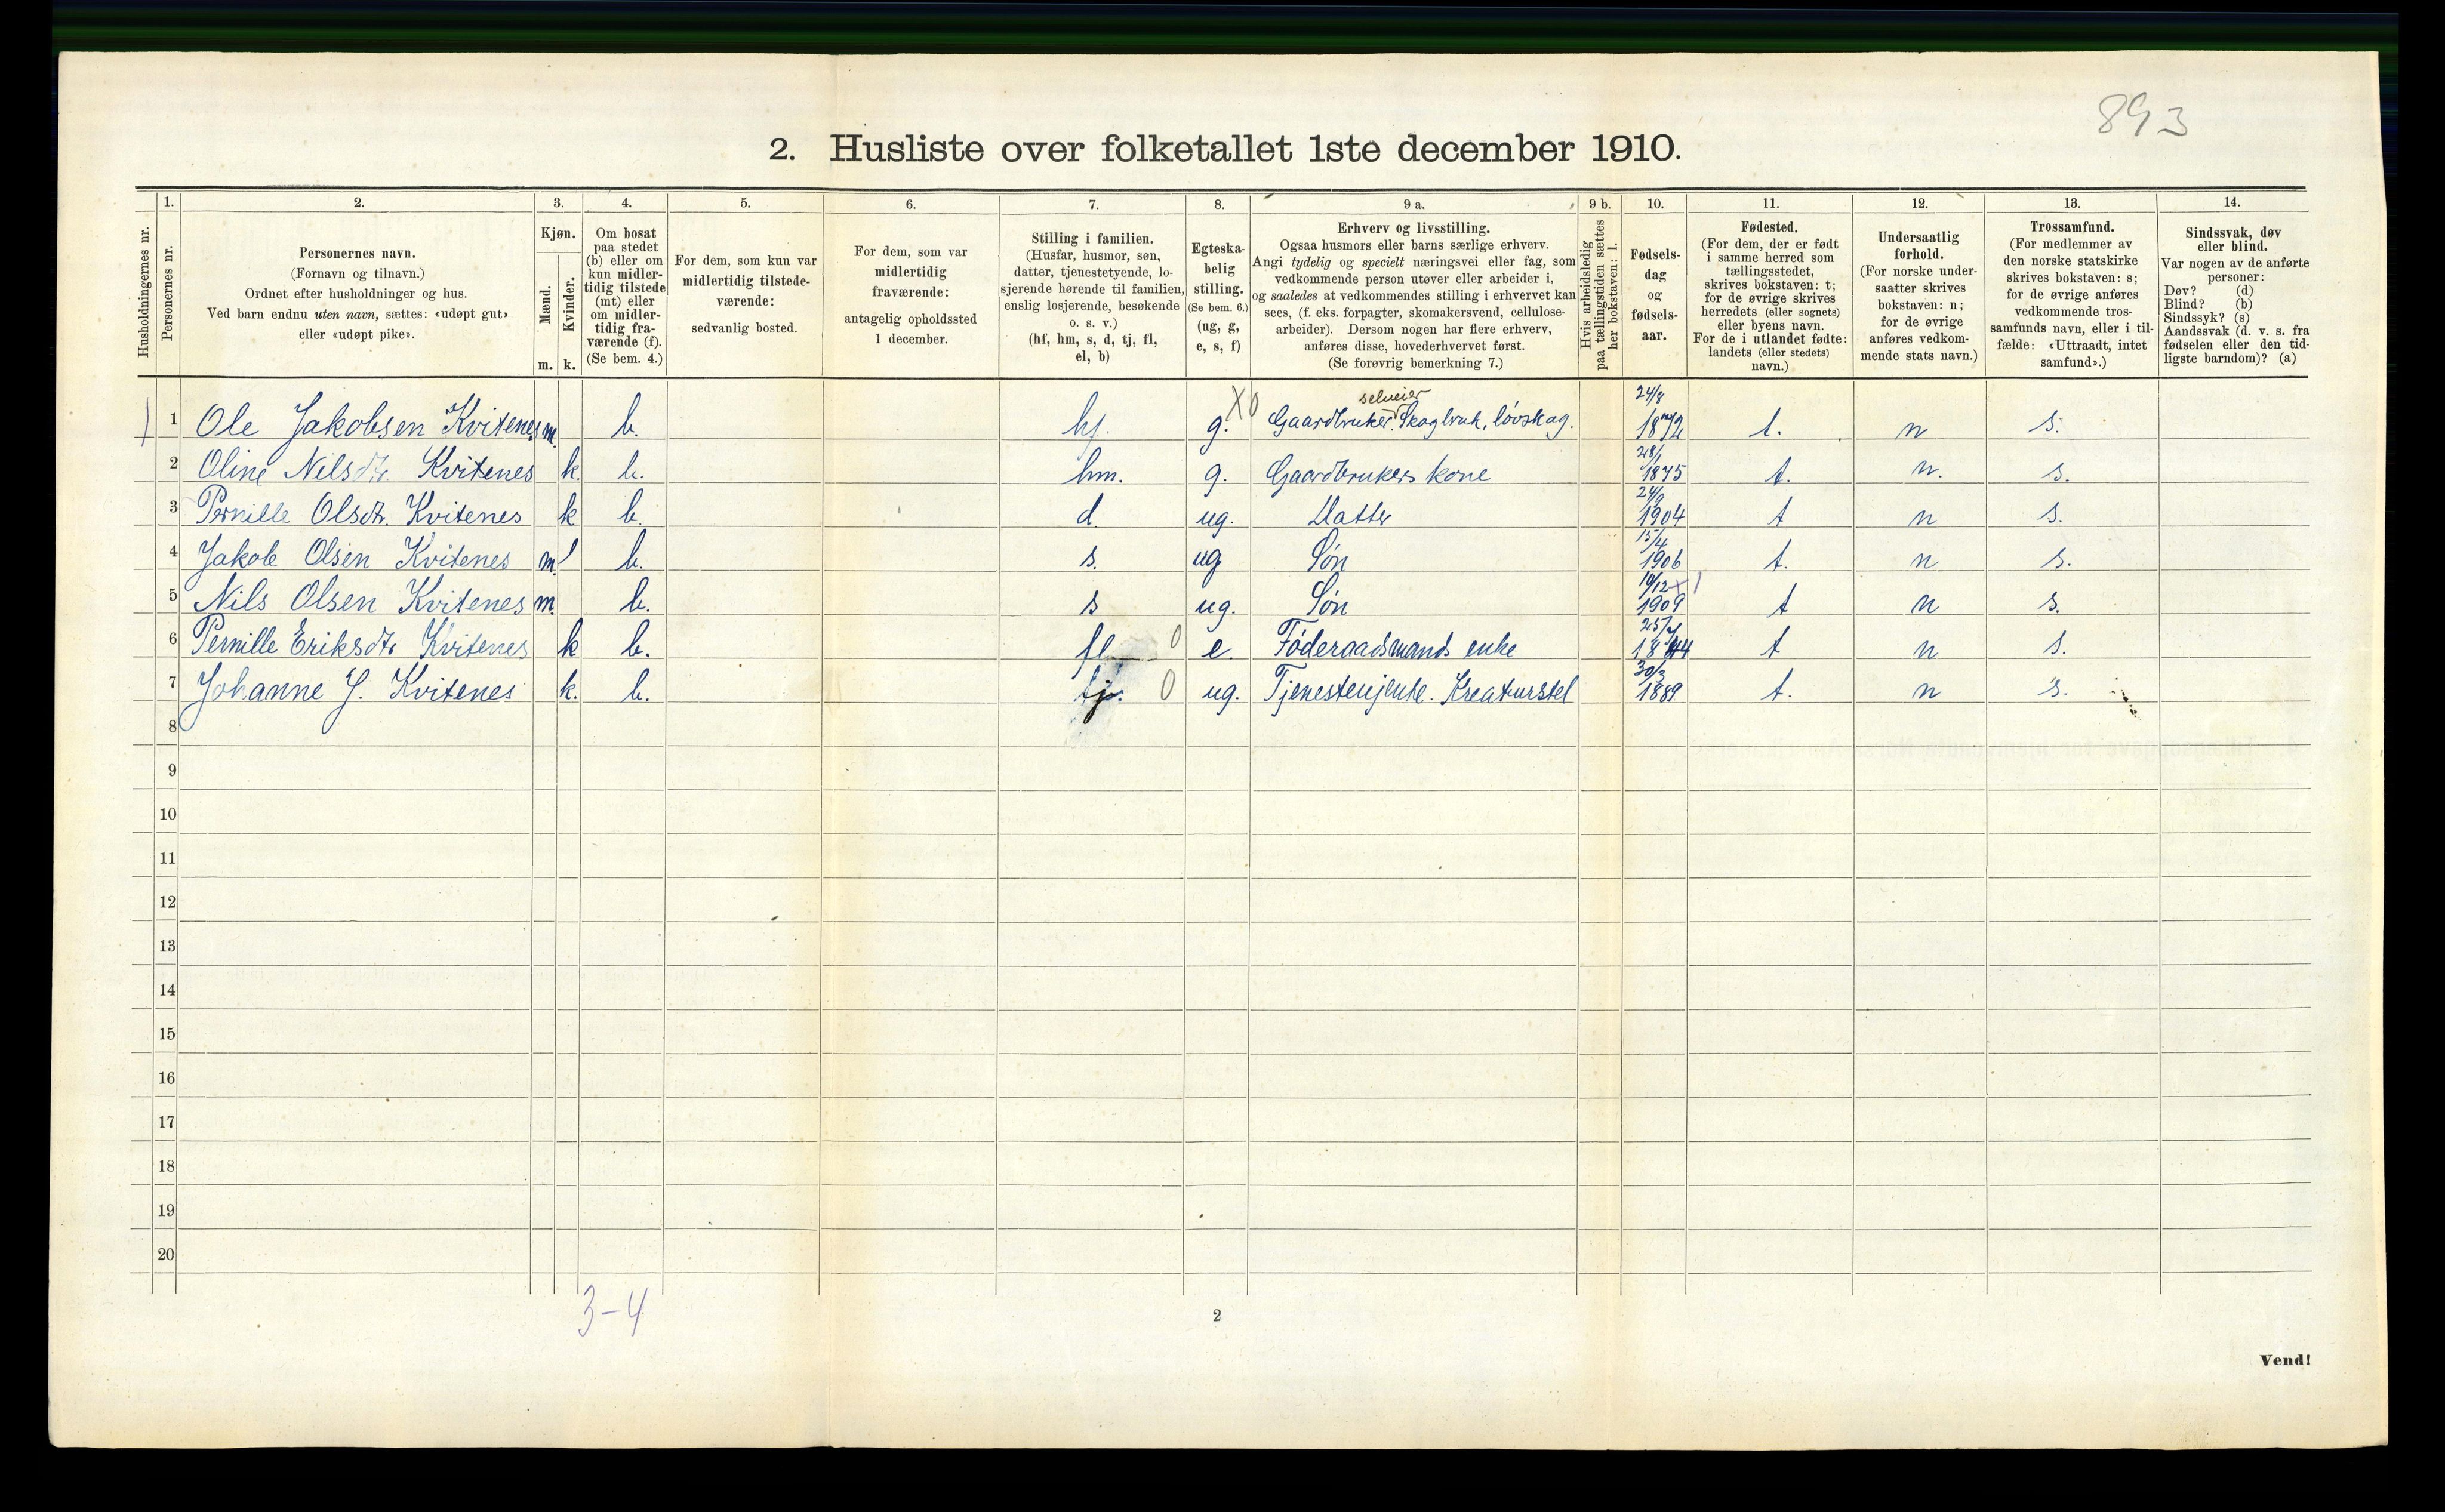 893
2. Husliste over folketallet 1ste december 1910.
Husholdningernes nr.
1.
Personernes nr.
2.
Personernes navn.
(Fornavn og tilnavn.)
Ordnet efter husholdninger og hus.
Ved barn endnu uten navn, sættes: «udøpt gut»
eller «udøpt pike».
3.
Kjøn.
Mænd.
Kvinder.
m. k.
4.
Om bosat
paa stedet
(b) eller om
kun midler-
tidig tilstede
(mt) eller
om midler-
tidig fra-
værende (f).
(Se bem. 4.)
5.
For dem, som kun var
midlertidig tilstede-
værende:
sedvanlig bosted.
6.
For dem, som var
midlertidig
fraværende:
antagelig opholdssted
1 december.
7.
Stilling i familien.
(Husfar, husmor, søn,
datter, tjenestetyende, lo-
sjerende hørende til familien,
enslig losjerende, besøkende
o. s. v.)
(hf, hm, s, d, tj, fl,
el, b)
8.
Egteska-
belig
stilling.
(Se bem. 6.)
(ug, g,
e, s, f)
9 a.
Erhverv og livsstilling.
Ogsaa husmors eller barns særlige erhverv.
Angi tydelig og specielt næringsvei eller fag, som
vedkommende person utøver eller arbeider i,
og saaledes at vedkommendes stilling i erhvervet kan
sees, (f. eks. forpagter, skomakersvend, cellulose-
arbeider). Dersom nogen har flere erhverv,
anføres disse, hovederhvervet først.
(Se forøvrig bemerkning 7.)
9 b.
Hvis arbeidsledig
paa tællingstiden sættes
her bokstaven: l.
10.
Fødsels-
dag
og
fødsels-
aar.
11.
Fødested.
(For dem, der er født
i samme herred som
tællingsstedet,
skrives bokstaven: t;
for de øvrige skrives
herredets (eller sognets)
eller byens navn.
For de i utlandet fødte:
landets (eller stedets)
navn.)
12.
Undersaatlig
forhold.
(For norske under-
saatter skrives
bokstaven: n;
for de øvrige
anføres vedkom-
mende stats navn.)
13.
Trossamfund.
(For medlemmer av
den norske statskirke
skrives bokstaven: s;
for de øvrige anføres
vedkommende tros-
samfunds navn, eller i til-
fælde: «Uttraadt, intet
samfund».)
14.
Sindssvak, døv
eller blind.
Var nogen av de anførte
personer:
Døv? (d)
Blind? (b)
Sindssyk? (s)
Aandssvak (d. v. s. fra
fødselen eller den tid-
ligste barndom)? (a)
selveier 24/8
1 Ole Jakobsen Kvitenes m. b. hf. g. X0 Gaardbruker. Skogbruk, løvskog. 1872 t. n s.
28/1
2 Oline Nilsdtr. Kvitenes k. b. hm. g. Gaardbrukers kone 1875 t. n. s.
24/9
3 Pernille Olsdtr. Kvitenes k b. d. ug. Datter 1904 t n s.
15/4
4 Jakob Olsen Kvitenes m. b. s. ug Søn 1906 t. n s.
5 Nils Olsen Kvitenes m. b. s ug. Søn 1909 t n s.
6 Pernille Eriksdtr Kvitenes k b. fl 0 e. Føderaadsmands enke 1844 t n s.
30/3
7 Johanne J. Kvitenes k. b. tj. 0 ug. Tjenestenjente. Kreaturstel 1889 t. n s.
8
9
10
11
12
13
14
15
16
17
18
19
20
3-4
2
Vend!